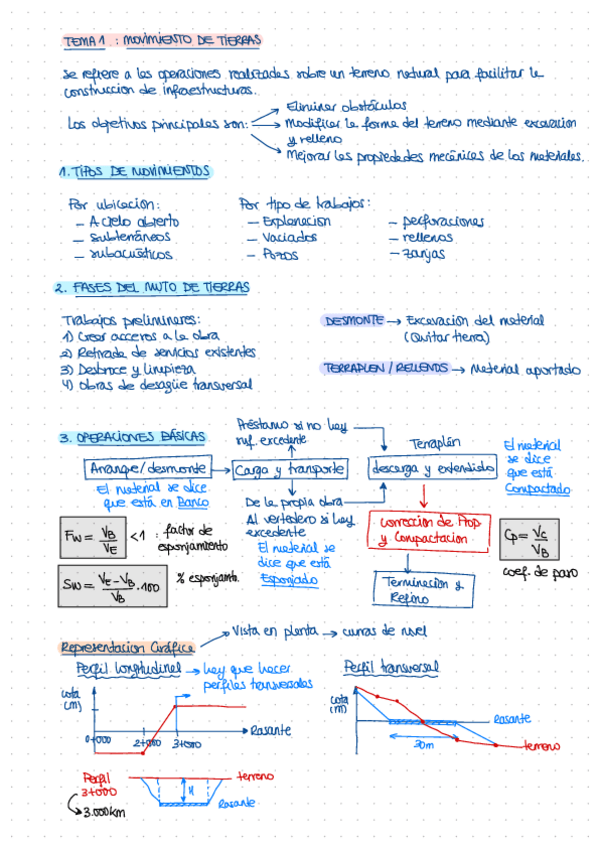 TEMA 1 : MOVIMIENTO DE TIERRAS
Se refiere a las operaciones realizadas sobre un terreno natural para facilitar la
construccion de infraestructuras.
Los objetivos principales son:
Eliminar obstáculos
Modificar la forma del terreno mediante excavacion
y relleno
Mejorar las propiedades mecánicas de los materiales.
1. TIPOS DE MOVIMIENTOS
Por ubicación:
- A cielo abierto
- Subterráneos
- Subacuáticos
Por tipo de trabajos:
- Explanacion
- Vaciados
- Pozos
- perforaciones
- rellenos
- zanjas
2. FASES DEL MVTO DE TIERRAS
Trabajos preliminares:
1) Crear accesos a la obra
2) Retirada de servicios existentes
3) Desbroce y limpieza
4) Obras de desagüe transversal
DESMONTE → Excavación del material
(Quitar tierra)
TERRAPLEN / RELLENOS → Material aportado
3. OPERACIONES BÁSICAS
Préstamo si no hay
suf. excedente
Terraplán
El material
se dice
que está
Compactado
Arranque/desmonte → Carga y transporte
descarga y extendido
El material se dice
que está en Banco
De la propia obra
Al vertedero si hay
excedente
El material se
dice que está
Esponjado
Corrección de Prop
y Compactacion
Terminacion y
Refino
Fw = VB/VE < 1 : factor de
esponjamiento
Sw = (VE - VB)/VB · 100 % esponjamto.
Cp = VC/VB
coef. de paso
Representacion Gráfica → Vista en planta → curvas de nivel
Perfil longitudinal → hay que hacer
perfiles transversales
cota
(m)
0+000 2+000 3+000
Rasante
Perfil transversal
cota
(m)
Rasante
30m
terreno
Perfil
3+000
3.000km
terreno
H
Rasante